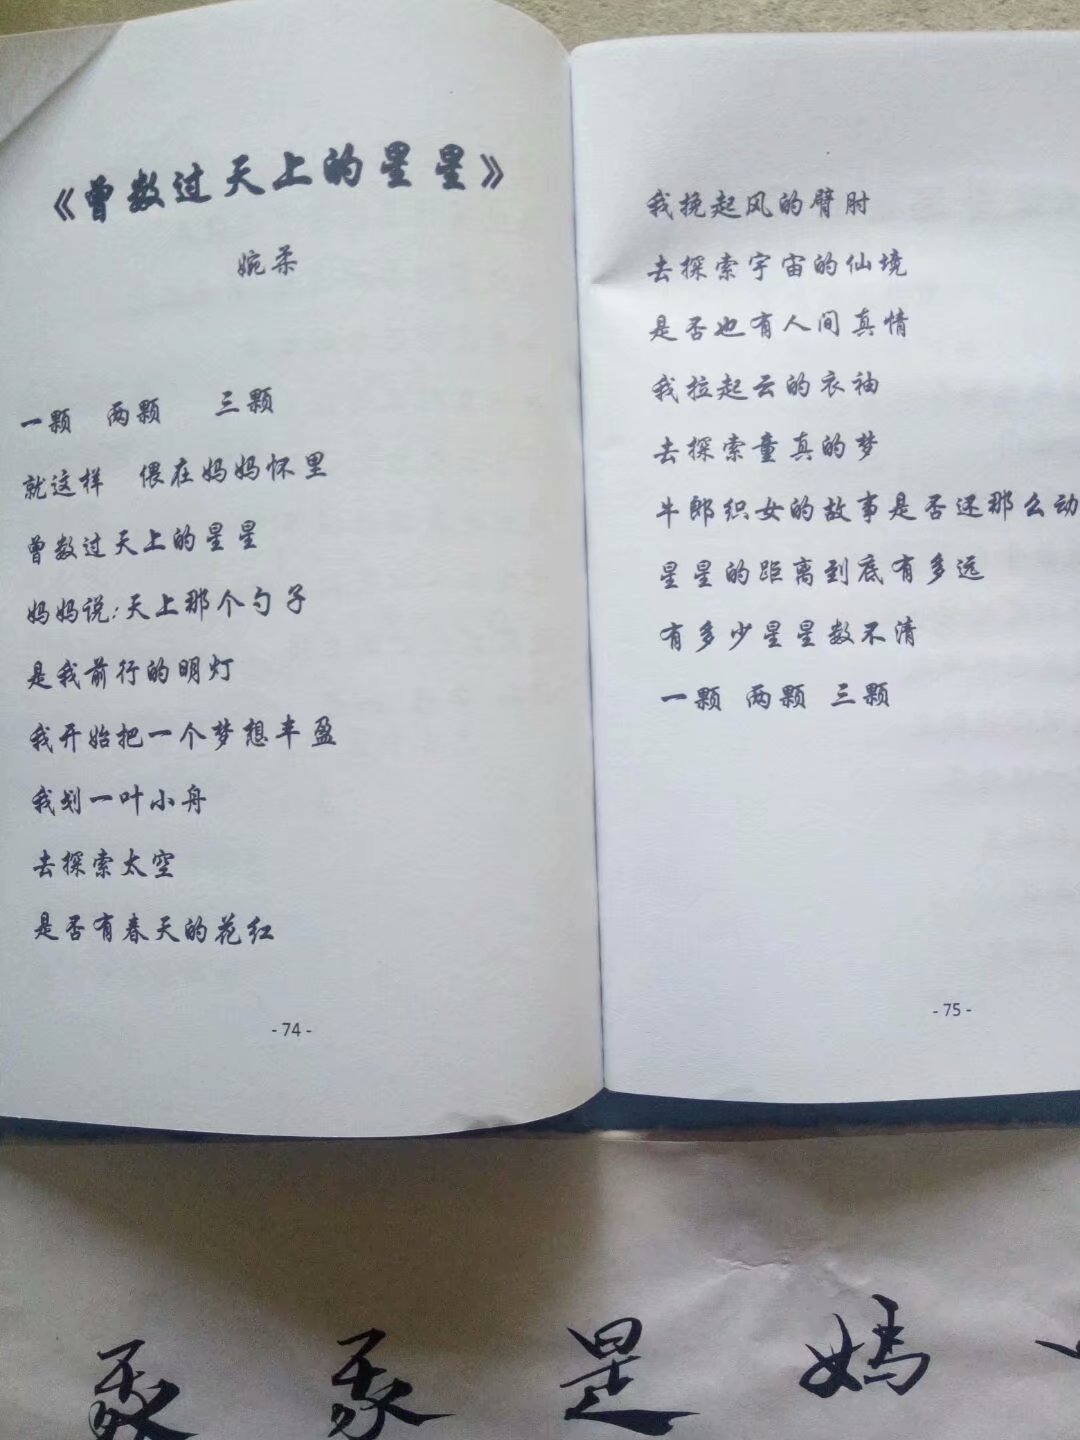 《曾数过天上的星星》
婉柔
一颗 两颗 三颗
就这样 偎在妈妈怀里
曾数过天上的星星
妈妈说:天上那个勺子
是我前行的明灯
我开始把一个梦想丰盈
我划一叶小舟
去探索太空
是否有春天的花红
- 74 -
我挽起风的臂肘
去探索宇宙的仙境
是否也有人间真情
我拉起云的衣袖
去探索童真的梦
牛郎织女的故事是否还那么动
星星的距离到底有多远
有多少星星数不清
一颗 两颗 三颗
- 75 -
是妈